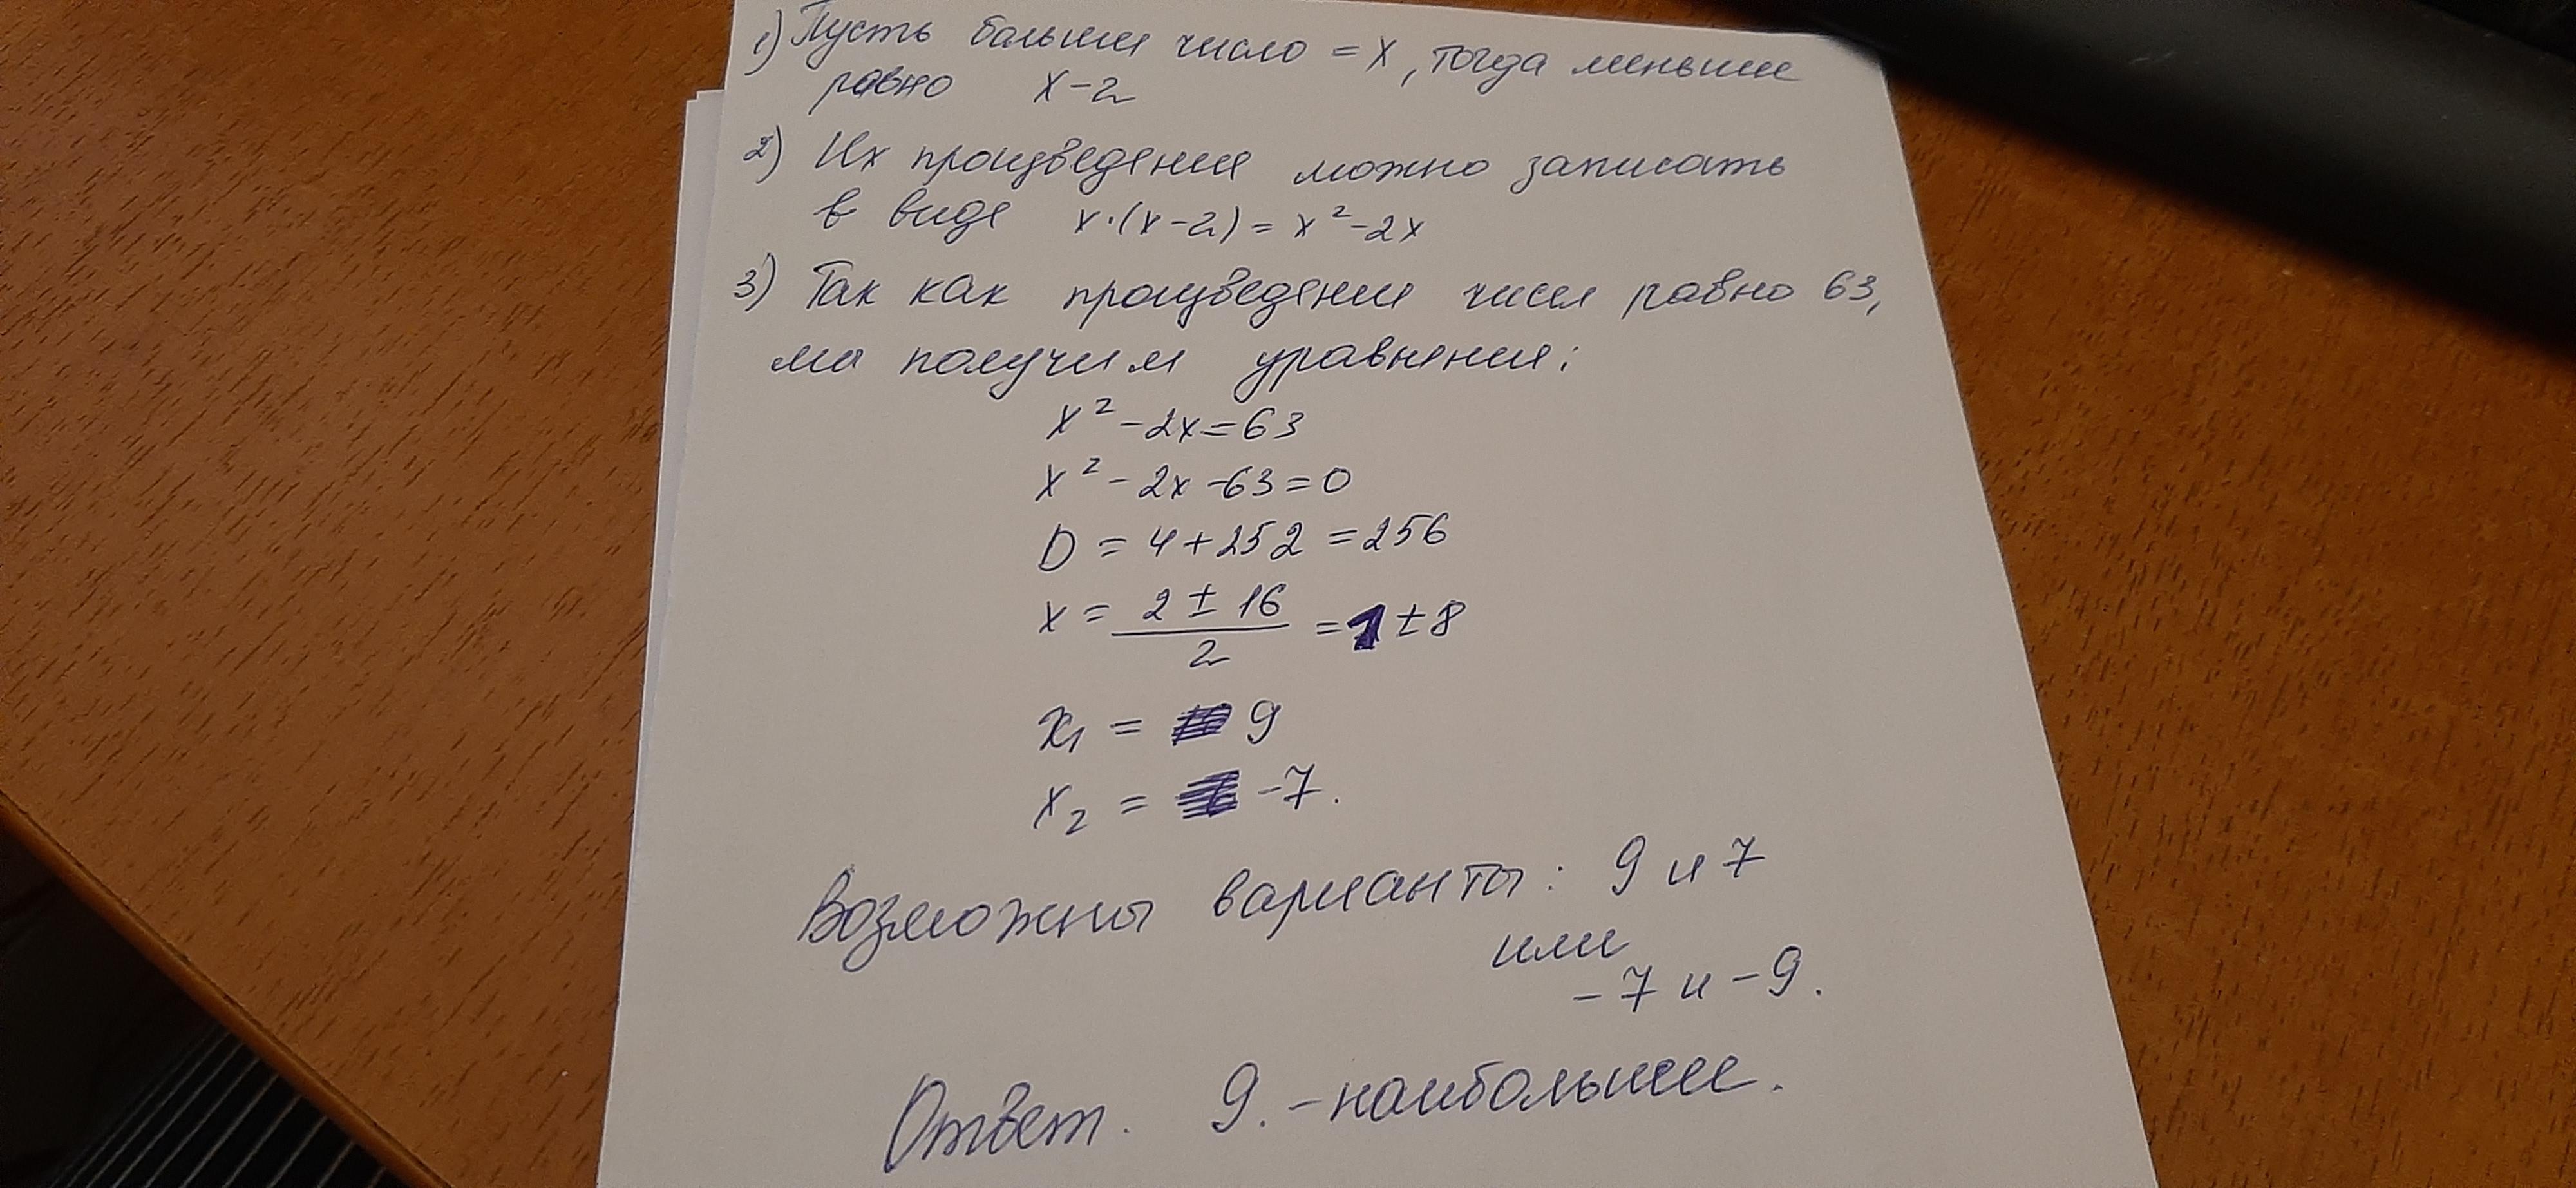 1) Пусть большее число = x, тогда меньшее
равно x-2
2) Их произведение можно записать
в виде x·(x-2) = x²-2x
3) Так как произведение чисел равно 63,
мы получим уравнение:
x²-2x=63
x²-2x-63=0
D = 4+252 = 256
x = (2 ± 16)/2 = 1 ± 8
x₁ = 9
x₂ = -7.
Возможны варианты: 9 и 7
или
-7 и -9.
Ответ. 9. - наибольшее.